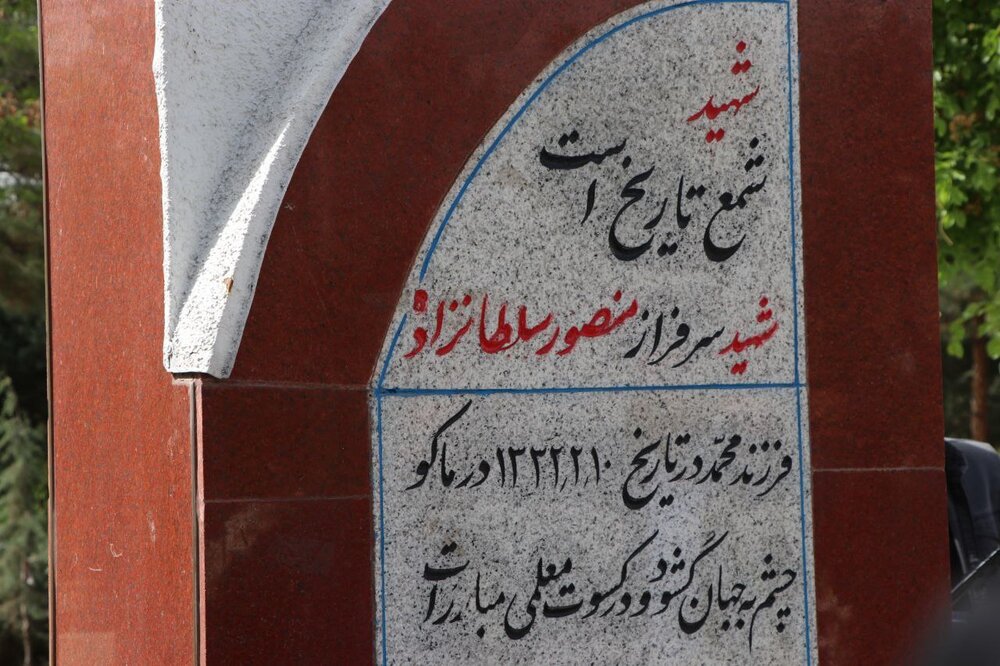 شهید
شمع تاریخ است
شهید سرفراز منصور سلطانزاده
فرزند محمد در تاریخ ۱۳۳۲٫۲٫۱۰ در ماکو
چشم به جهان گشود و در کسوت معلمی مبارزات